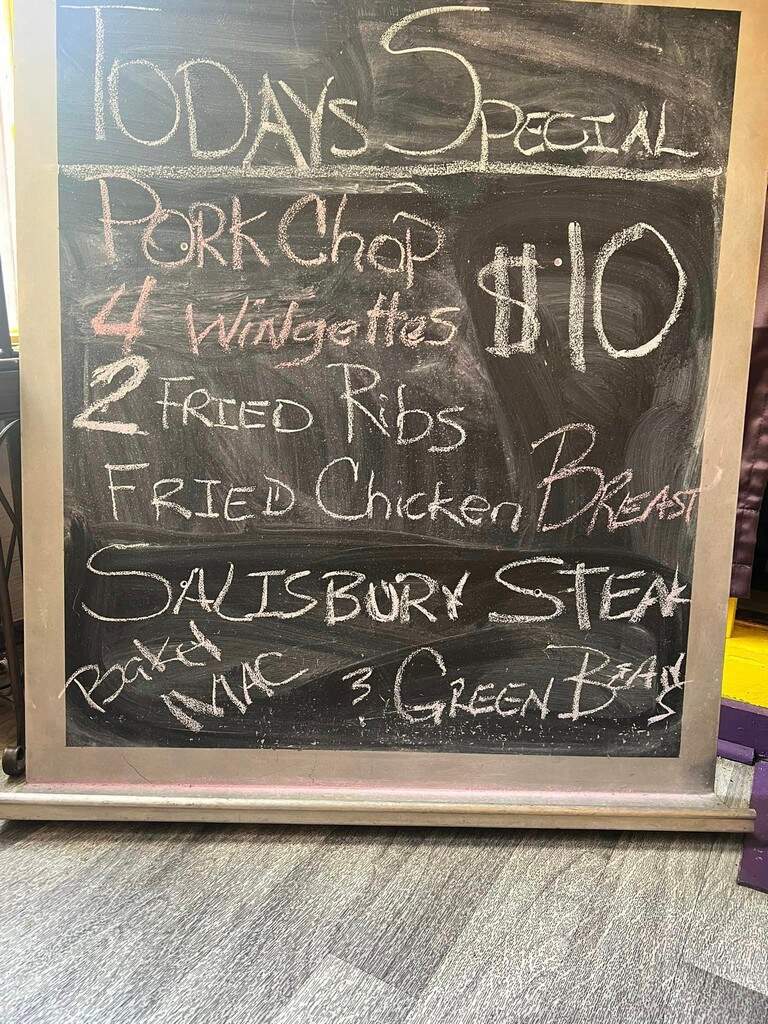 TODAYS SPECIAL
PORK Chop
$10
4 Wingettes
2 FRIED Ribs
FRIED Chicken BREAST
SALISBURY STEAK
Baked MAC & GREEN BEANS